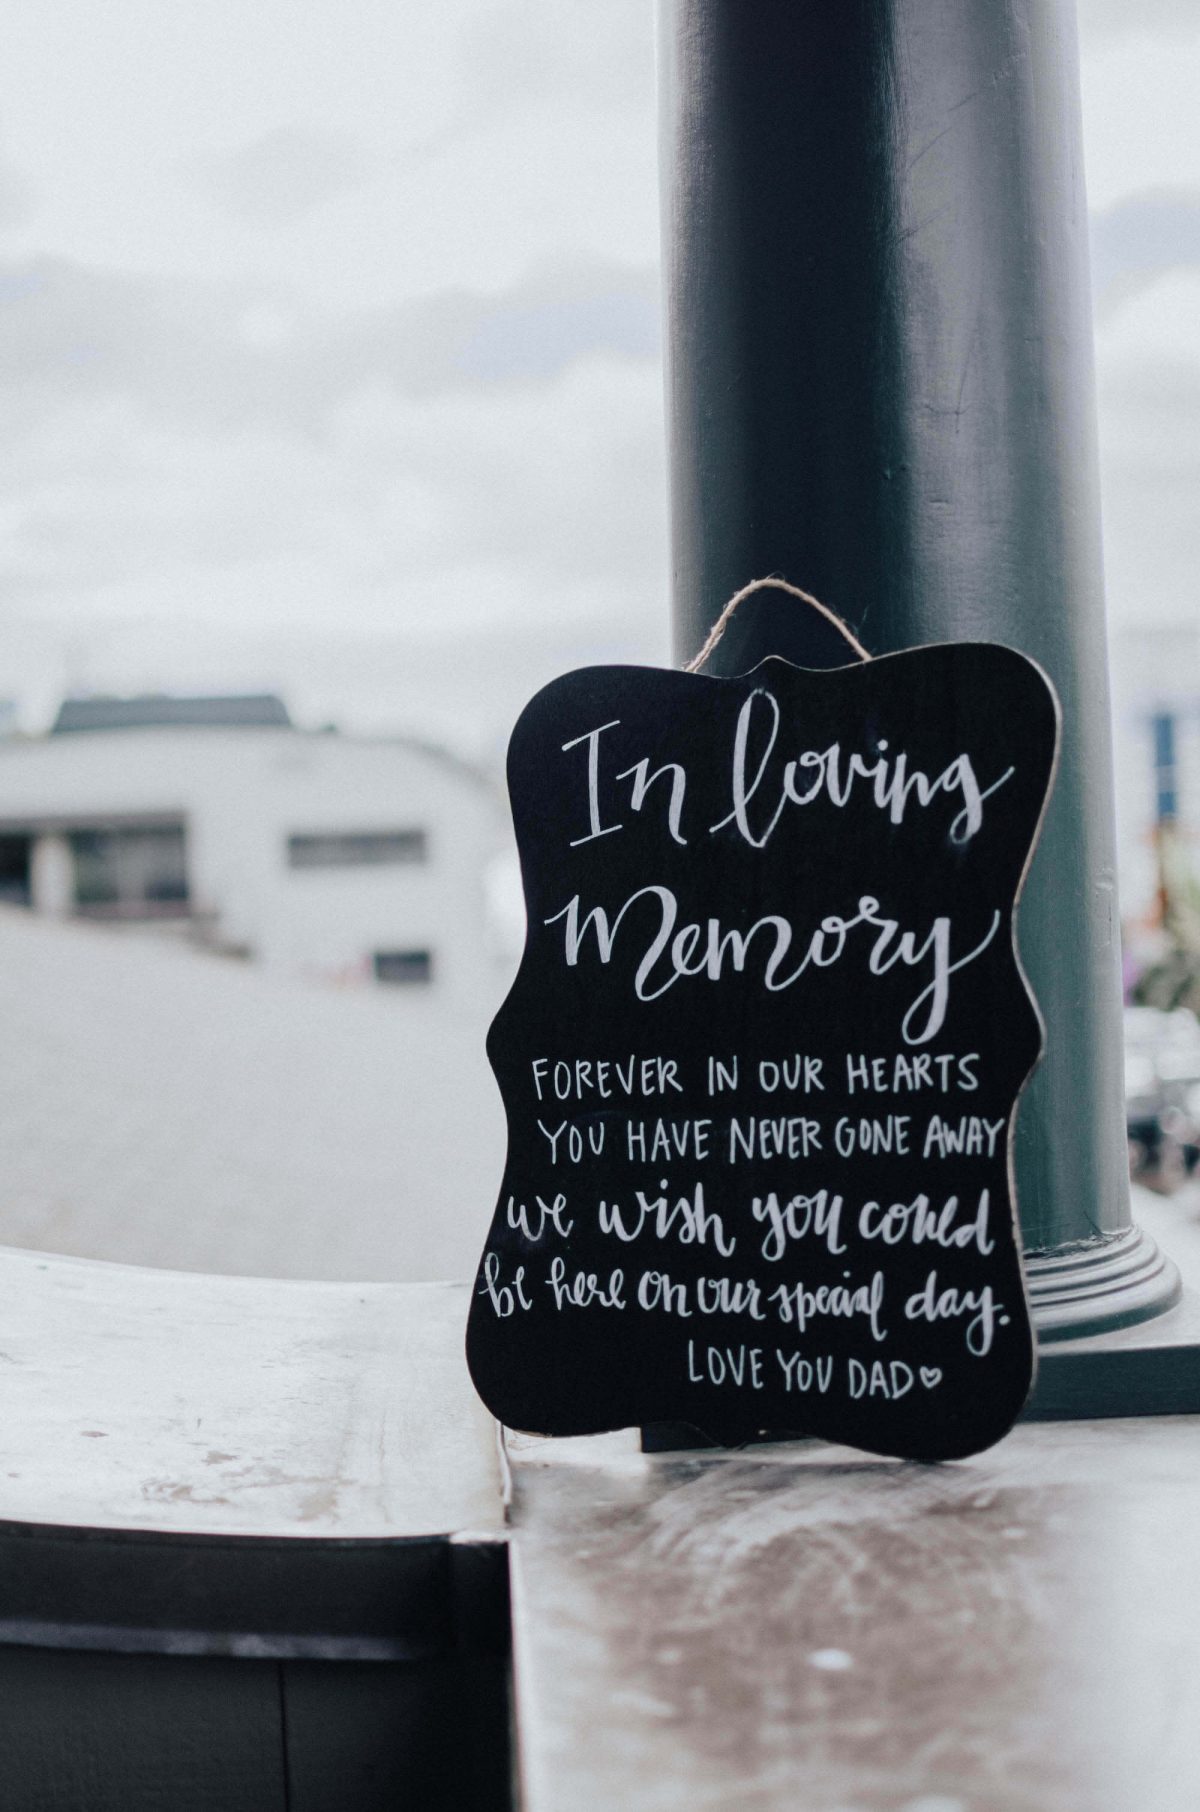 In loving
Memory
FOREVER IN OUR HEARTS
YOU HAVE NEVER GONE AWAY
we wish you could
be here on our special day.
LOVE YOU DAD♡